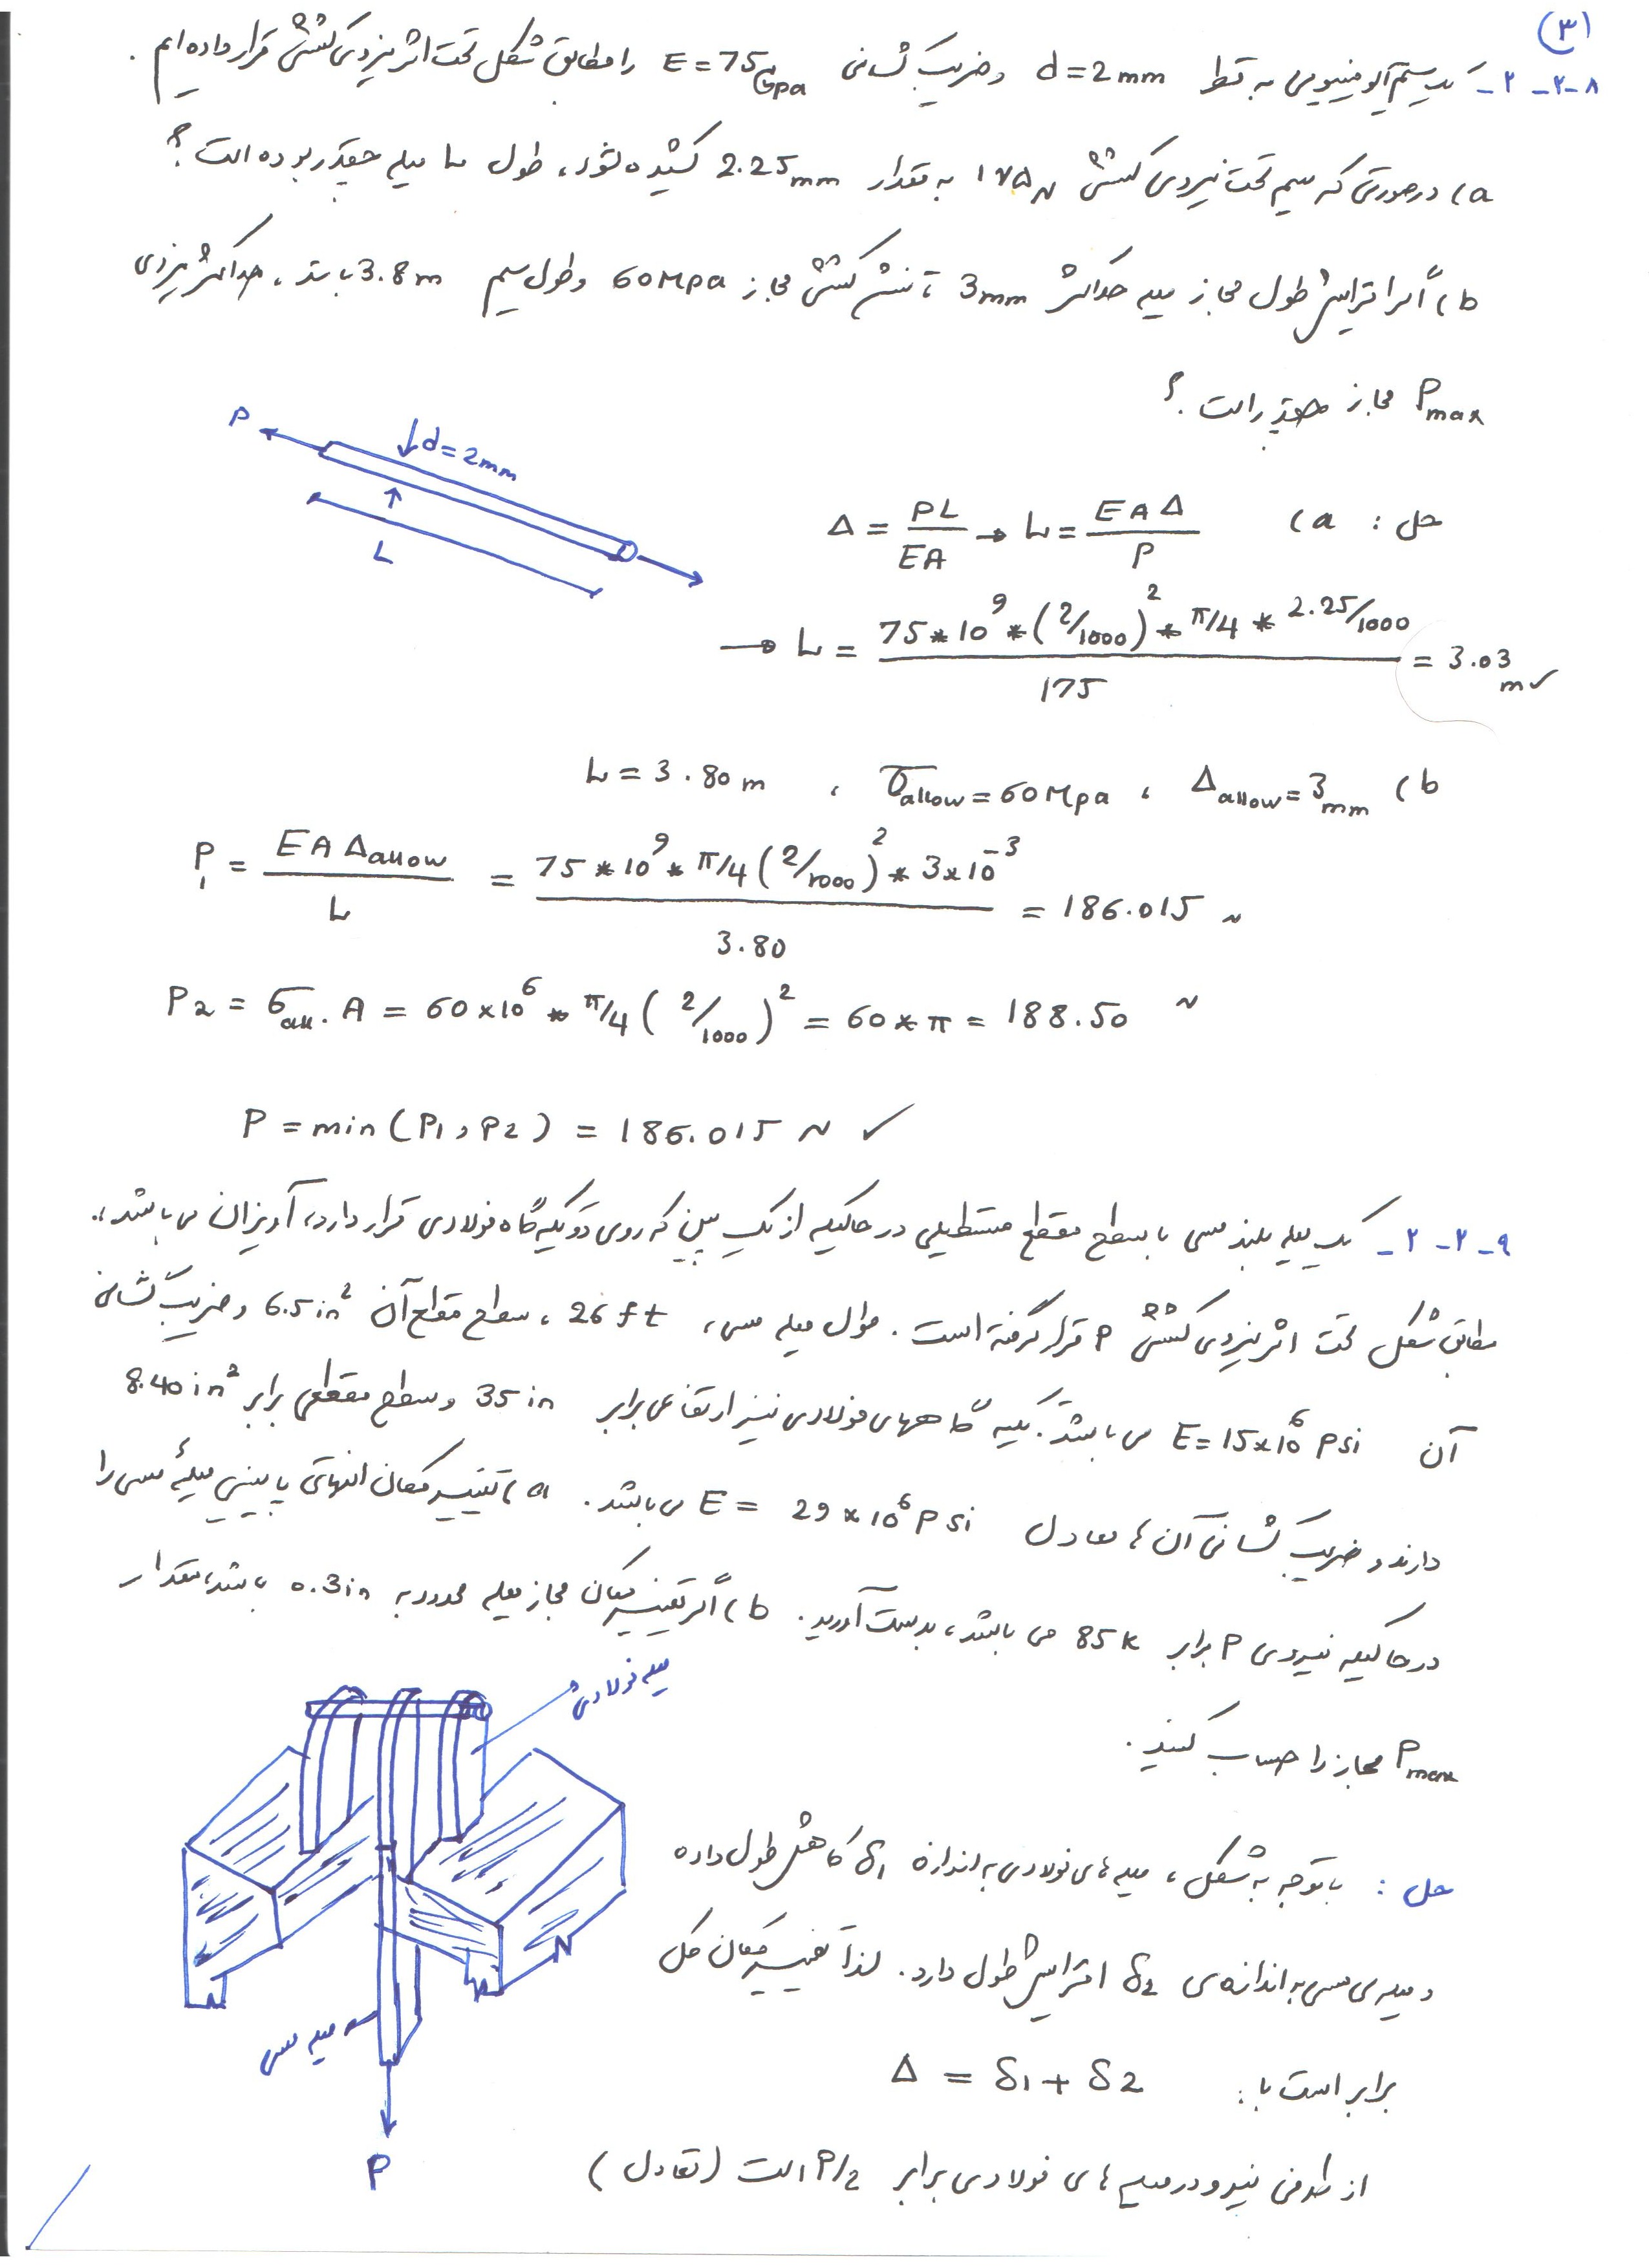 (۳)
۲-۲-۸- یک سیم آلومینیومی به قطر d=2mm و ضریب کشسانی E=75Gpa را مطابق شکل تحت اثر نیروی کششی قرار داده ایم.
a) در صورتی که سیم تحت نیروی کششی ۱۷۵N به مقدار 2.25mm کشیده شود، طول میله چقدر بوده است؟
b) اگر افزایش طول مجاز میله حداکثر 3mm، تنش کششی مجاز 60Mpa و طول سیم 3.8m باشد، حداکثر نیروی
Pmax مجاز چقدر است؟
P
d=2mm
L
حل: a) Δ = PL/EA → L = EAΔ/P
→ L = 75*10^9*(2/1000)^2*π/4*2.25/1000 / 175 = 3.03 m ✓
b) Δallow=3mm ، σallow=60Mpa ، L=3.80m
P1 = EAΔallow/L = 75*10^9*π/4(2/1000)^2*3x10^-3 / 3.80 = 186.015 N
P2 = σall.A = 60x10^6*π/4(2/1000)^2 = 60*π = 188.50 N
P=min(P1,P2) = 186.015 N ✓
۲-۲-۹- یک میله بلند مسی با سطح مقطع مستطیلی در حالیکه از یک پین که روی دو تکیه گاه فولادی قرار دارد، آویزان می باشد،
مطابق شکل تحت اثر نیروی کششی P قرار گرفته است. طول میله مسی، 26ft، سطح مقطع آن 6.5in² و ضریب کشسانی
آن E=15x10^6 psi می باشد. تکیه گاههای فولادی نیز ارتفاعی برابر 35in و سطح مقطعی برابر 8.40in²
دارند و ضریب کشسانی آن ها معادل E = 29x10^6 Psi می باشد. a) تغییر مکان انتهای پایینی میلهٔ مسی را
در حالیکه نیروی P برابر 85k می باشد، بدست آورید. b) اگر تغییر مکان مجاز میله محدود به 0.3in باشد، مقدار
Pmax مجاز را حساب کنید.
میله فولادی
میله مسی
P
حل: با توجه به شکل، میله های فولادی به اندازه δ1 کاهش طول داده
و میله ی مسی به اندازه ی δ2 افزایش طول دارد. لذا تغییر مکان کل
برابر است با: Δ = δ1+δ2
از طرفی نیرو در میله های فولادی برابر P/2 است (تعادل)